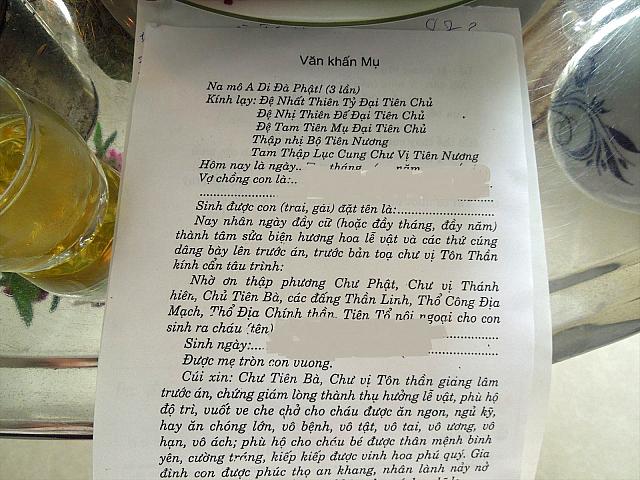 Văn khấn Mụ
Na mô A Di Đà Phật! (3 lần)
Kính lạy: Đệ Nhất Thiên Tỷ Đại Tiên Chủ
Đệ Nhị Thiên Đế Đại Tiên Chủ
Đệ Tam Tiên Mụ Đại Tiên Chủ
Thập nhị Bộ Tiên Nương
Tam Thập Lục Cung Chư Vị Tiên Nương
Hôm nay là ngày.. tháng năm
Vợ chồng con là:..
Sinh được con (trai, gái) đặt tên là:
Nay nhân ngày đầy cữ (hoặc đầy tháng, đầy năm)
thành tâm sửa biện hương hoa lễ vật và các thứ cúng
dâng bày lên trước án, trước bàn toạ chư vị Tôn Thần
kính cẩn tâu trình:
Nhờ ơn thập phương Chư Phật, Chư vị Thánh
hiền, Chủ Tiên Bà, các đấng Thần Linh, Thổ Công Địa
Mạch, Thổ Địa Chính thần, Tiên Tổ nội ngoại cho con
sinh ra cháu (tên)
Sinh ngày:....
Được mẹ tròn con vuông.
Cúi xin: Chư Tiên Bà, Chư vị Tôn thần giáng lâm
trước án, chứng giám lòng thành thụ hưởng lễ vật, phù hộ
độ trì, vuốt ve che chở cho cháu được ăn ngon, ngủ kỹ,
hay ăn chóng lớn, vô bệnh, vô tật, vô tai, vô ương, vô
hạn, vô ách; phù hộ cho cháu bé được thân mệnh bình
yên, cường tráng, kiếp kiếp được vinh hoa phú quý. Gia
đình con được phúc thọ an khang, nhân lành nảy nở